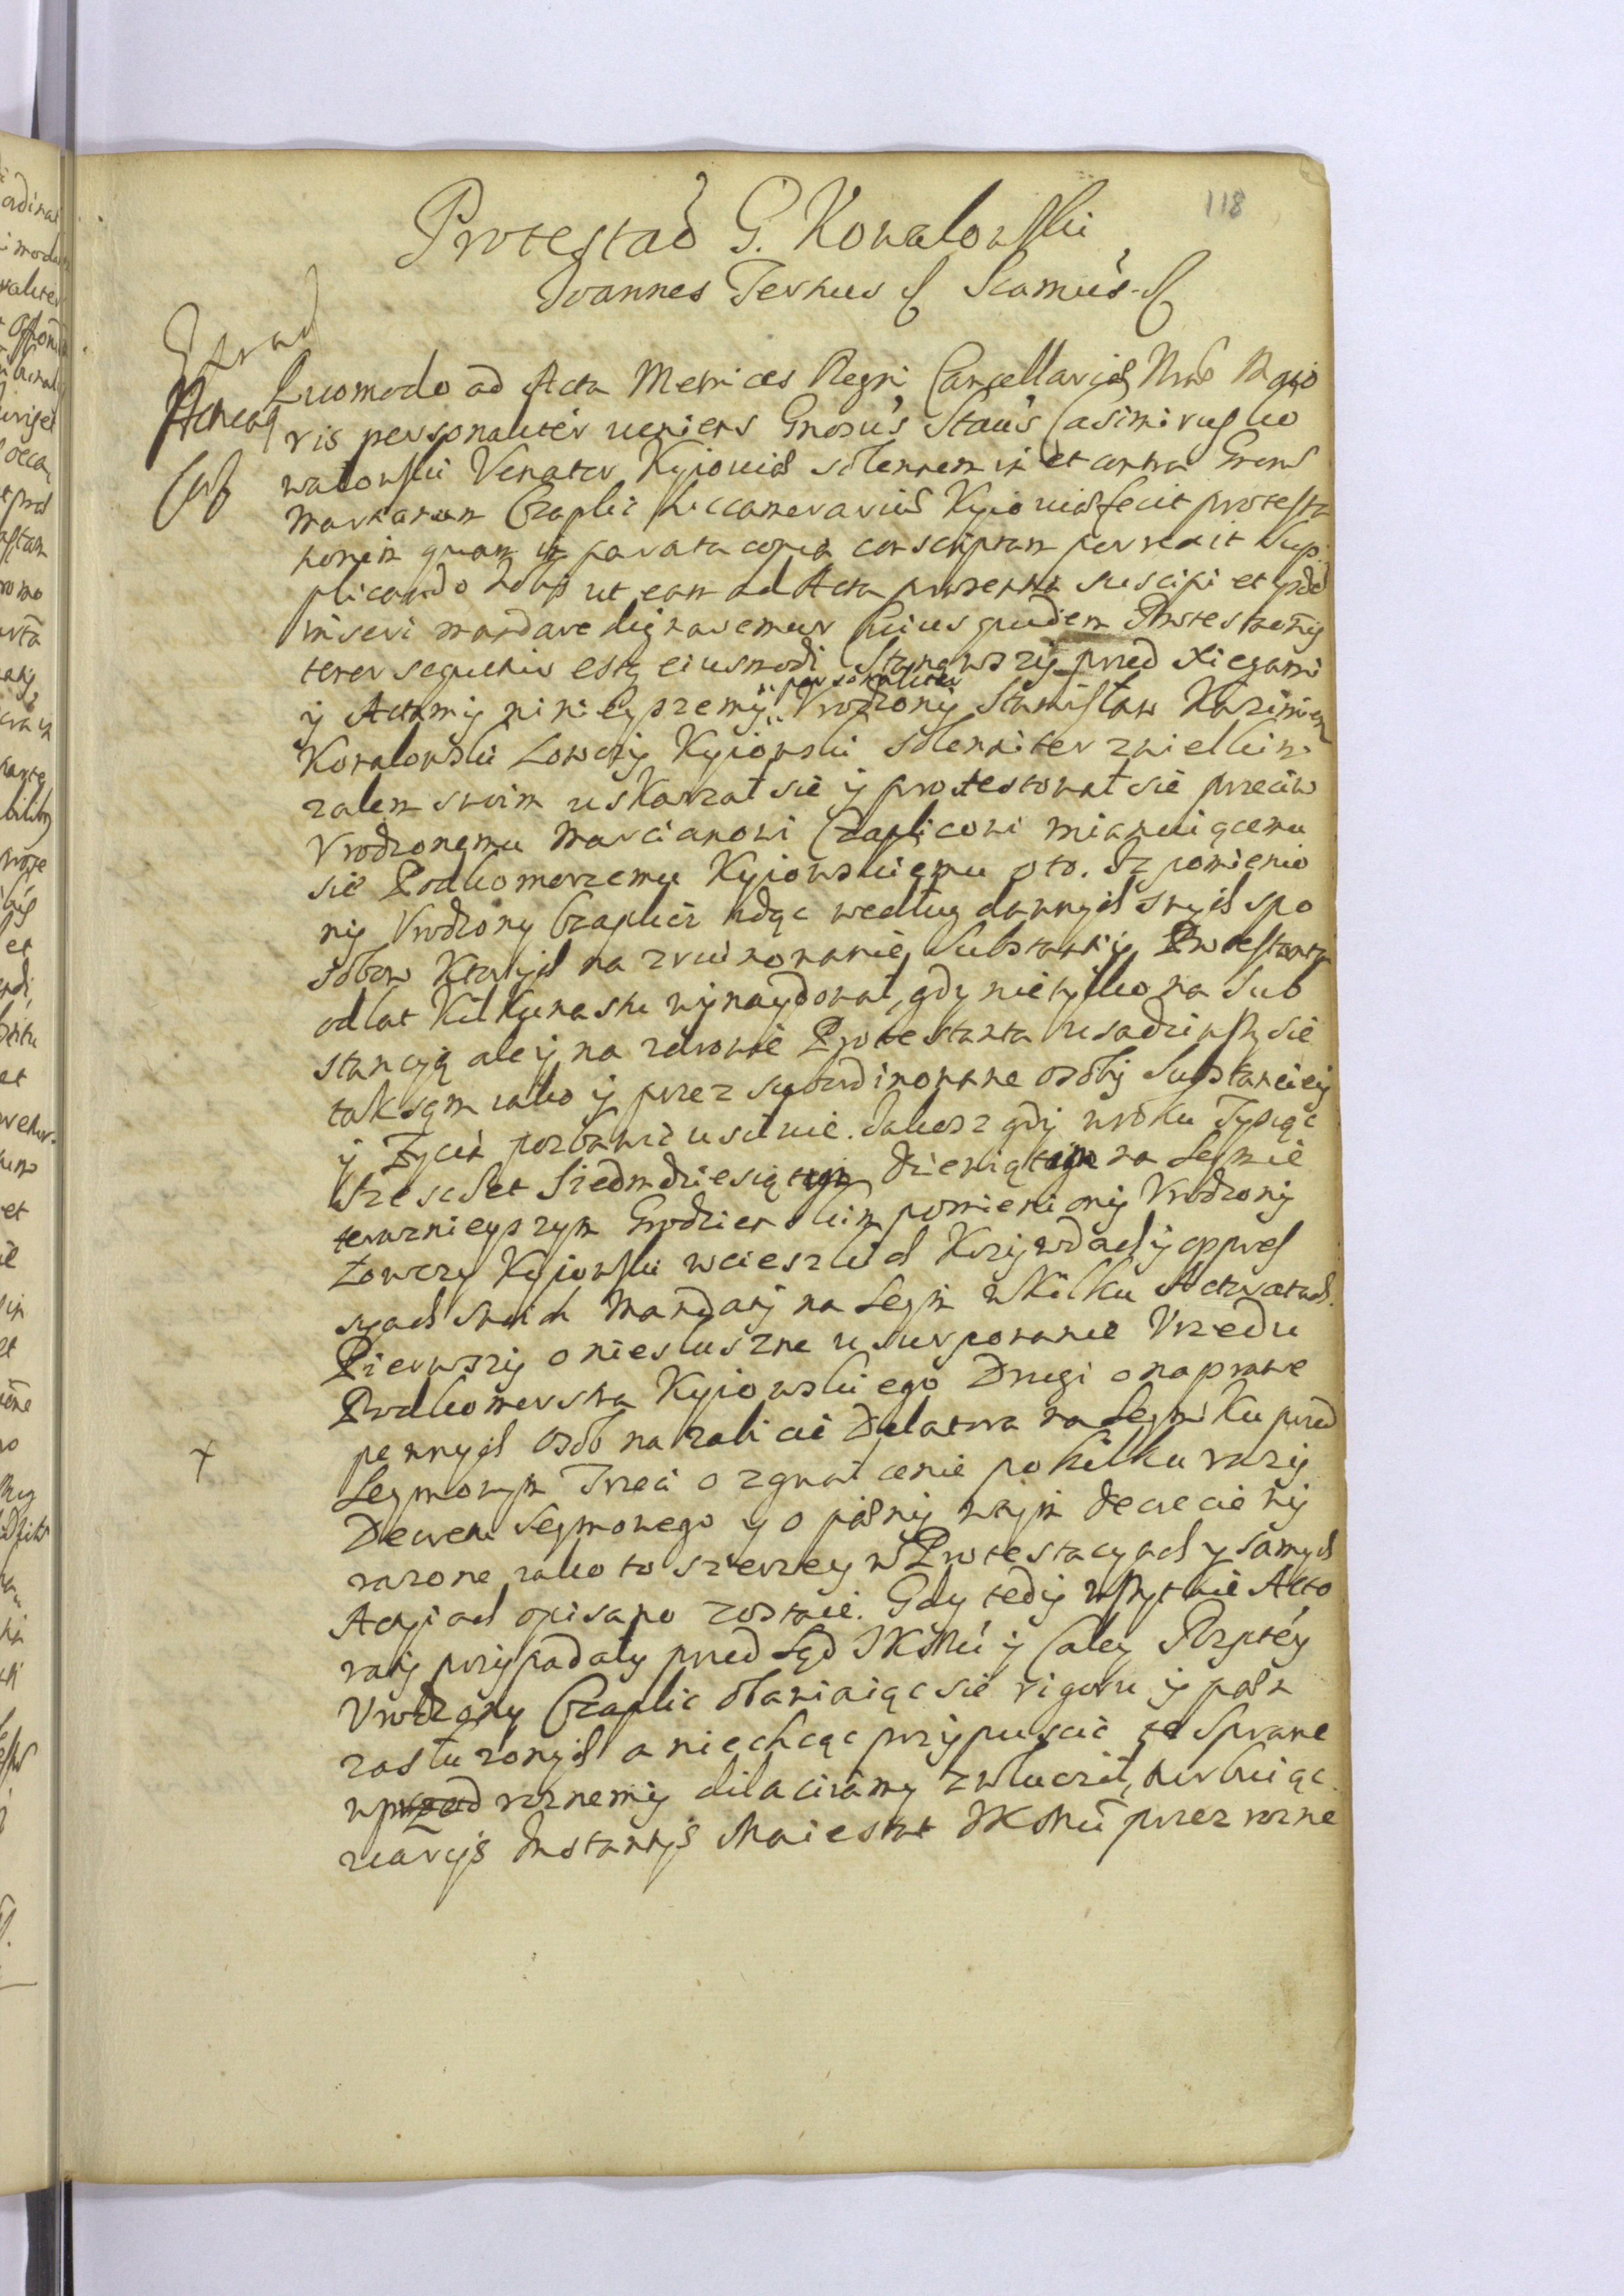 118
Protestaõ G. Kowalowski
Ioannes Tertius & Significamus &
Extrad
Quomodo ad Acta Metrices Regni Cancellarias Nras Maio
ris personaliter veniens Gnosus Staus Casimirus Ko
walowski Venator Kyiovias solennem in et contra Gnosm
Marcianum Czaplic Succamerarius Kyiovias fecit protesta
tionem quam in parata copia conscriptam porrexit Sup
plicando Nobis ut eam ad Acta praesentia suscipi et
inseri mandare dignaremur Cuius quidem Protestationis
tenor sequentis est eiusmodi Stanąwszy przed Xięgami
y Actamy ninieyszemy personaliter Vrodzony Stanisław Kazimierz
Kowalowski Łowczy Kyiowski solenniter z wielkim
zalem swoim uskarzał się y protestował się przeciw
Vrodzonemu Marcianowi Czaplicowi mianuiącemu
się Podkomorzemu Kyiowskiemu o to. Iz pomienio
ny Vrodzony Czaplic idąc według dawnych swych spo
sobow ktorych na zruinowanie Substantiy Protestanta
od lat kilkunastu wynaydował, gdy nie tylko na Sub
stancyą ale y na zdrowie Protestanta usadziwszy się
tak sam iako y przez subordinowane osoby Substanciey
y Zycia pozbawic usiłuie. Iakosz gdy w roku Tysiąc
szescset Siedmdziesiątym Dziewiątym na Seymie
teraznieyszym Grodzienskim pomieniony Vrodzony
Łowczy Kyiowski w cieszkich Krzywdach y oppres
syach swoich Mandaty na Seym w Kilku Actoratach.
Pierwszy o niesłuszne usurpowanie Vrzędu
Podkomorstwa Kyiowskiego Drugi o naprawe
pewnych osob na zabicie Delatora na Seymiku przed
Seymowym Trzeci o zgwałcenie po kilku razy
Decretu Seymowego y o paeny w tym decrecie wy
razone iako to szerzey w Protestacyach y samych
Actyiach opisano zostaie. Gdy tedy wszytkie Acto
raty przypadały przed Sąd IKMci y Całey Rzptey
Vrodzony Czaplic obawiaiąc się rigoru y paen
zasłuzonych a niechcąc przypuscic te Sprawe
wprzod roznemy dilaciiamy zwłuczał, turbuiąc
Instantys Maiestat IKMci przez rozne